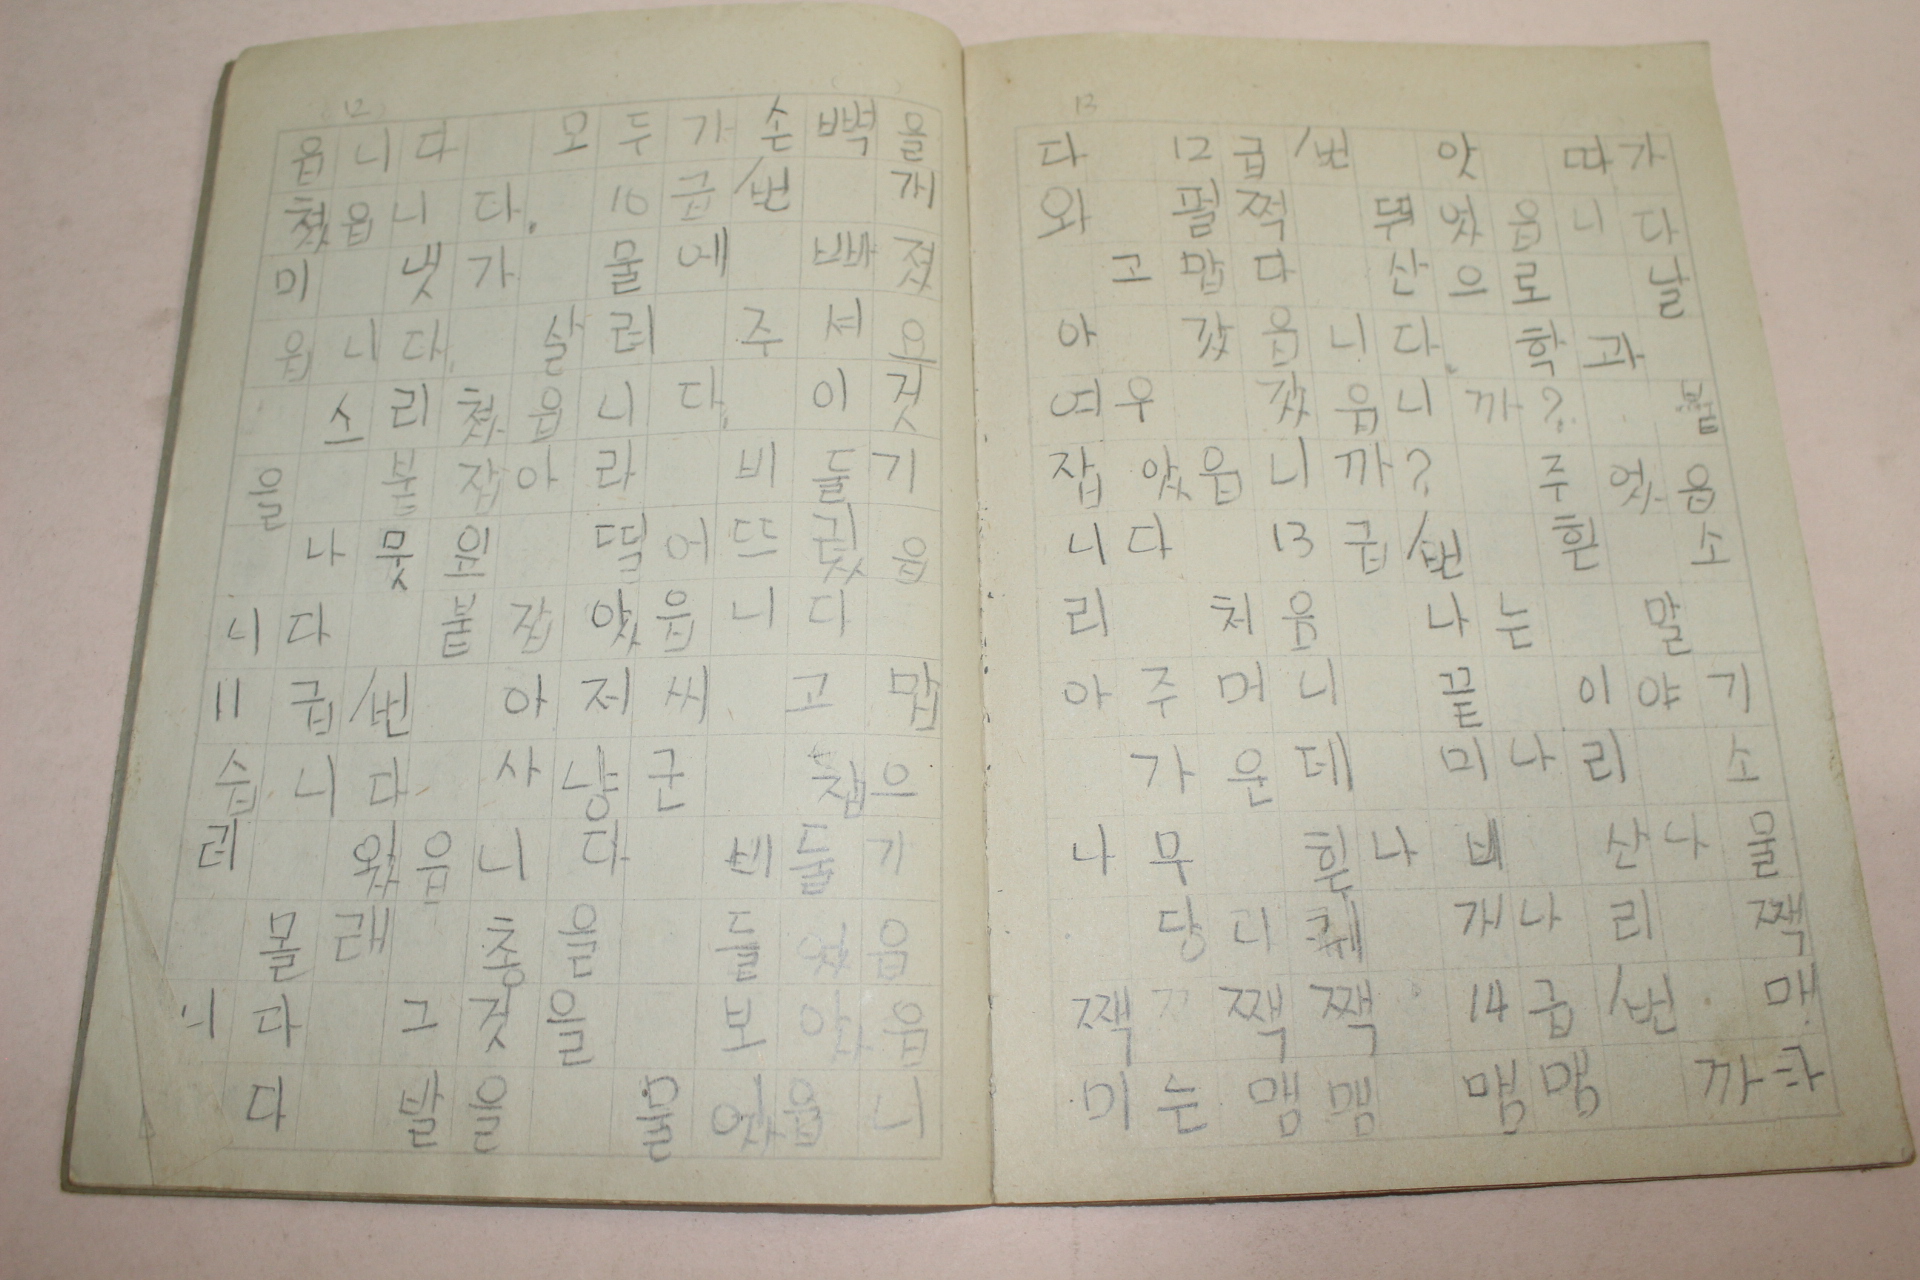 12
읍니다 모두가 손뼉을
쳤읍니다. 10급/번 개
미 냇가 물에 빠졌
읍니다. 살려 주셔요
스리쳤읍니다. 이것
을 붙잡아라 비둘기
나뭇잎 떨어뜨렸읍
니다 붙잡았읍니다
11급/번 아저씨 고맙
습니다. 사냥군 잽으
러 왔읍니다 비둘기
몰래 총을 들었읍
니다 그것을 보았읍
다 발을 물었읍니
13
다 12급/번 앗 따가
와 펄쩍 뛰었읍니다
고맙다 산으로 날
아 갔읍니다. 학과
여우 갔읍니까? 붙
잡았읍니까? 주었읍
니다 13급/번 흰 소
리 처음 나는 말
아주머니 끝 이야기
가운데 미나리 소
나무 흰나비 산나물
당나귀 개나리 짹
짹 짹짹 14급/번 매
미는 맴맴 맴맴 까